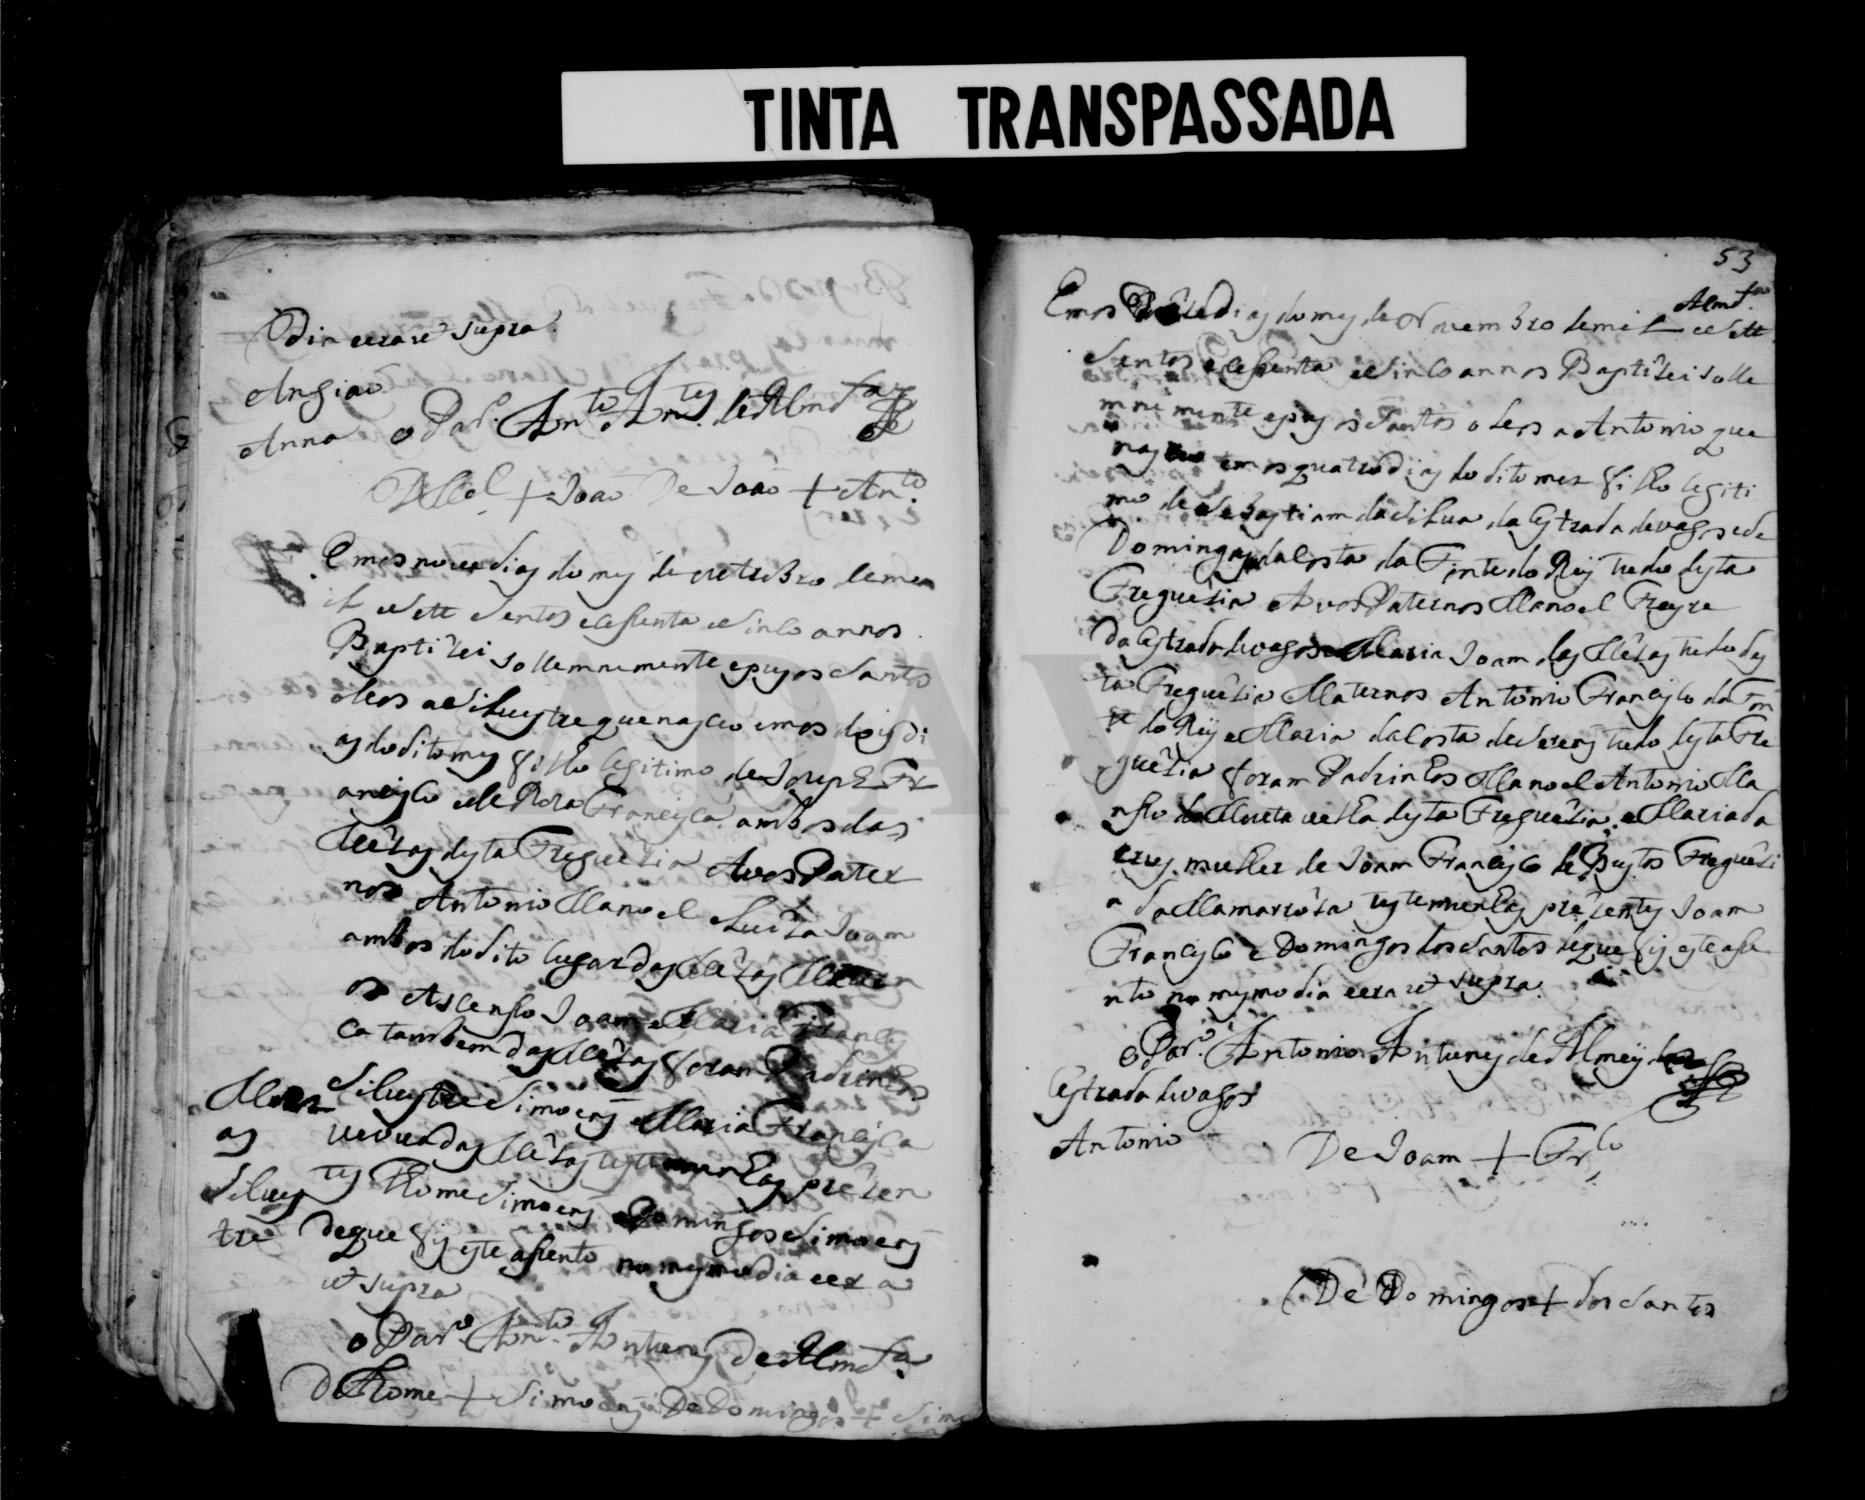 TINTA TRANSPASSADA
dia eera ut supra
Ansiao
Anna
o Par.º Ant.º Ant.es de Almd.a
De M.el + Joaõ De Joaõ + Ant.º
Emos nove dias do mes de outubro de m
il e sete sentos e sesenta e sinco annos
Baptizei sollemnemente e pus os santos
oleos a Silvestre que nasceo emos dois di
as do dito mes filho legitimo de Joseph Fr
ancisco e de Roza Francisca ambos das
Mezas desta Freguezia Avos Pater
nos Antonio Manoel e Luiza Joam
ambos do dito lugar das Mezas Mater
os Ascenso Joam e Maria Francis
ca tambem das Mezas foram Padrinhos
Silvestre Simoens e Maria Francisca
veuva das Mezas testemunhas prezen
tes Thome Simoens e Domingos Simoens
de que fis este asento no mesmo dia eera
ut supra
Mez
as
Silves
tre
o Par.º Ant.º Antunes de Almd.a
De Thome + Simoens De Domingos + Simo
53
Almd.a
Emos dias do mes de Novembro de mil e sete
sentos e sesenta e sinco annos Baptizei solle
mnemente e pus os santos oleos a Antonio que
nasceo emos quatro dias do dito mes filho legiti
mo de Sebastiam da Silva da Estrada de vagos e de
Domingas da Costa da Fonte do Rey tudo desta
Freguezia Avos Paternos Manoel Freyre
da Estrada de vagos e Maria Joam das Mezas tudo des
ta Freguezia Maternos Antonio Francisco da Fon
te do Rey e Maria da Costa de tudo desta Fre
guezia foram Padrinhos Manoel Antonio Ma
nso da desta Freguezia e Maria da
Crus mulher de Joam Francisco de Bustos Freguezi
a da Mamaroza testemunhas prezentes Joam
Francisco e Domingos dos Santos de que fis este ase
nto no mesmo dia eera ut supra
o Par.º Antonio Antunes de Almeyda
Estrada de vagos
Antonio
De Joam + Fr.co
De Domingos + dos Santos